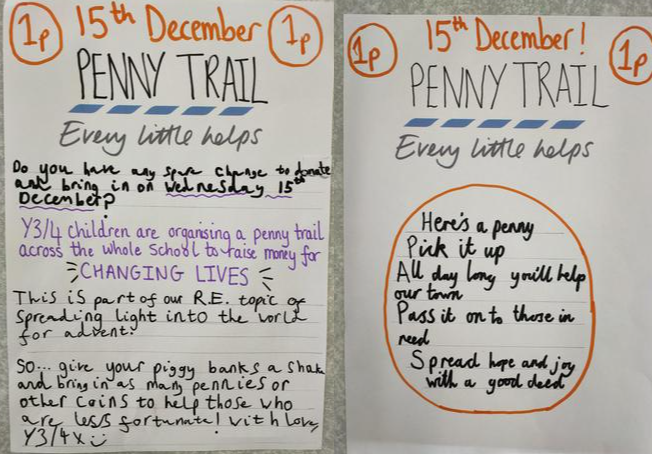 1p 15th December 1p
PENNY TRAIL
Every little helps
Do you have any spare change to donate
and bring in on Wednesday 15th
December?
Y3/4 children are organising a penny trail
across the whole School to raise money for
CHANGING LIVES
This is part of our R.E. topic of
spreading light into the world
for advent.
So... give your piggy banks a shake
and bring in as many pennies or
other coins to help those who
are less fortunate! With love,
Y3/4 x
1p 15th December! 1p
PENNY TRAIL
Every little helps
Here's a penny
Pick it up
All day long you'll help
our town
Pass it on to those in
need
Spread hope and joy
with a good deed